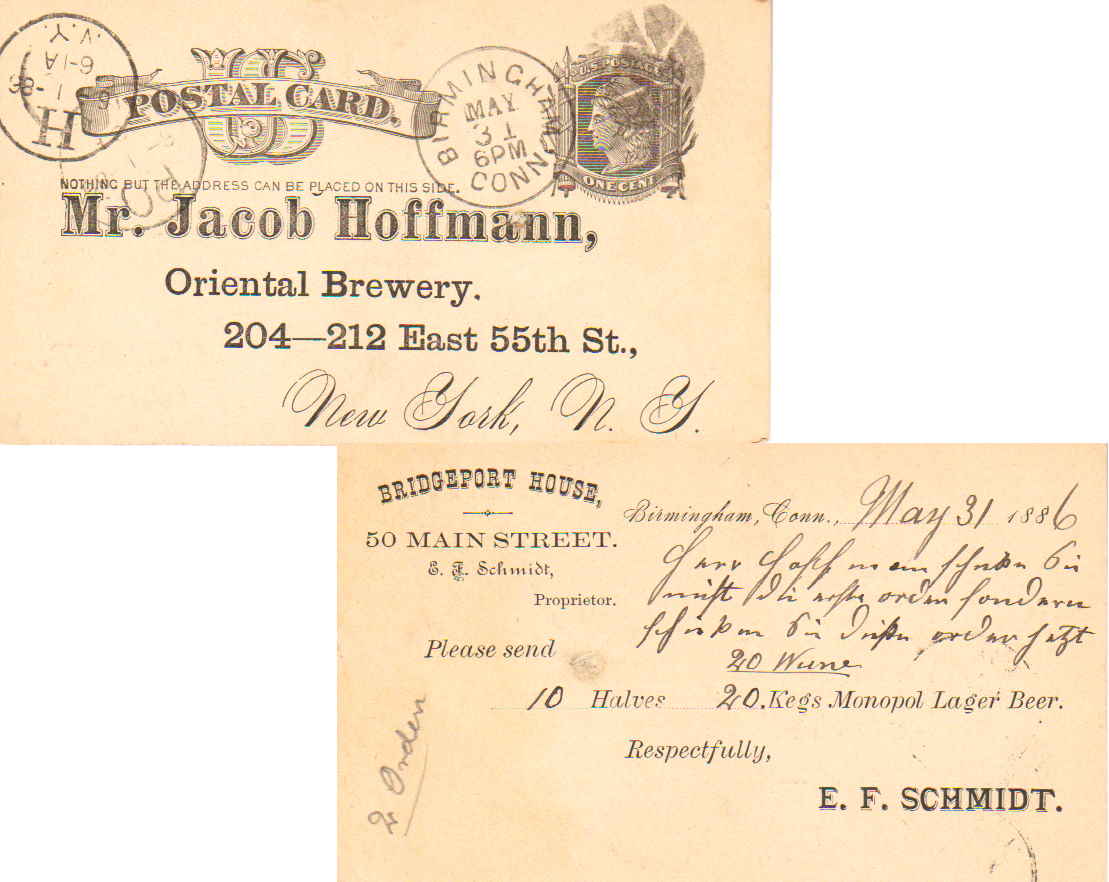 U S
POSTAL CARD.
NOTHING BUT THE ADDRESS CAN BE PLACED ON THIS SIDE.
BIRMINGHAM
MAY
31
6PM
CONN.
U.S. POSTAGE
ONE CENT
H
6-1A
N.Y.
Mr. Jacob Hoffmann,
Oriental Brewery.
204—212 East 55th St.,
New York, N. Y.
BRIDGEPORT HOUSE,
50 MAIN STREET.
E. F. Schmidt,
Proprietor.
Birmingham, Conn., May 31 1886
Herr Hoffmann schicken Sie
nicht die erste order sondern
schicken Sie diese order jetzt
20 Wiene
Please send
10 Halves 20. Kegs Monopol Lager Beer.
Respectfully,
E. F. SCHMIDT.
2 Orden